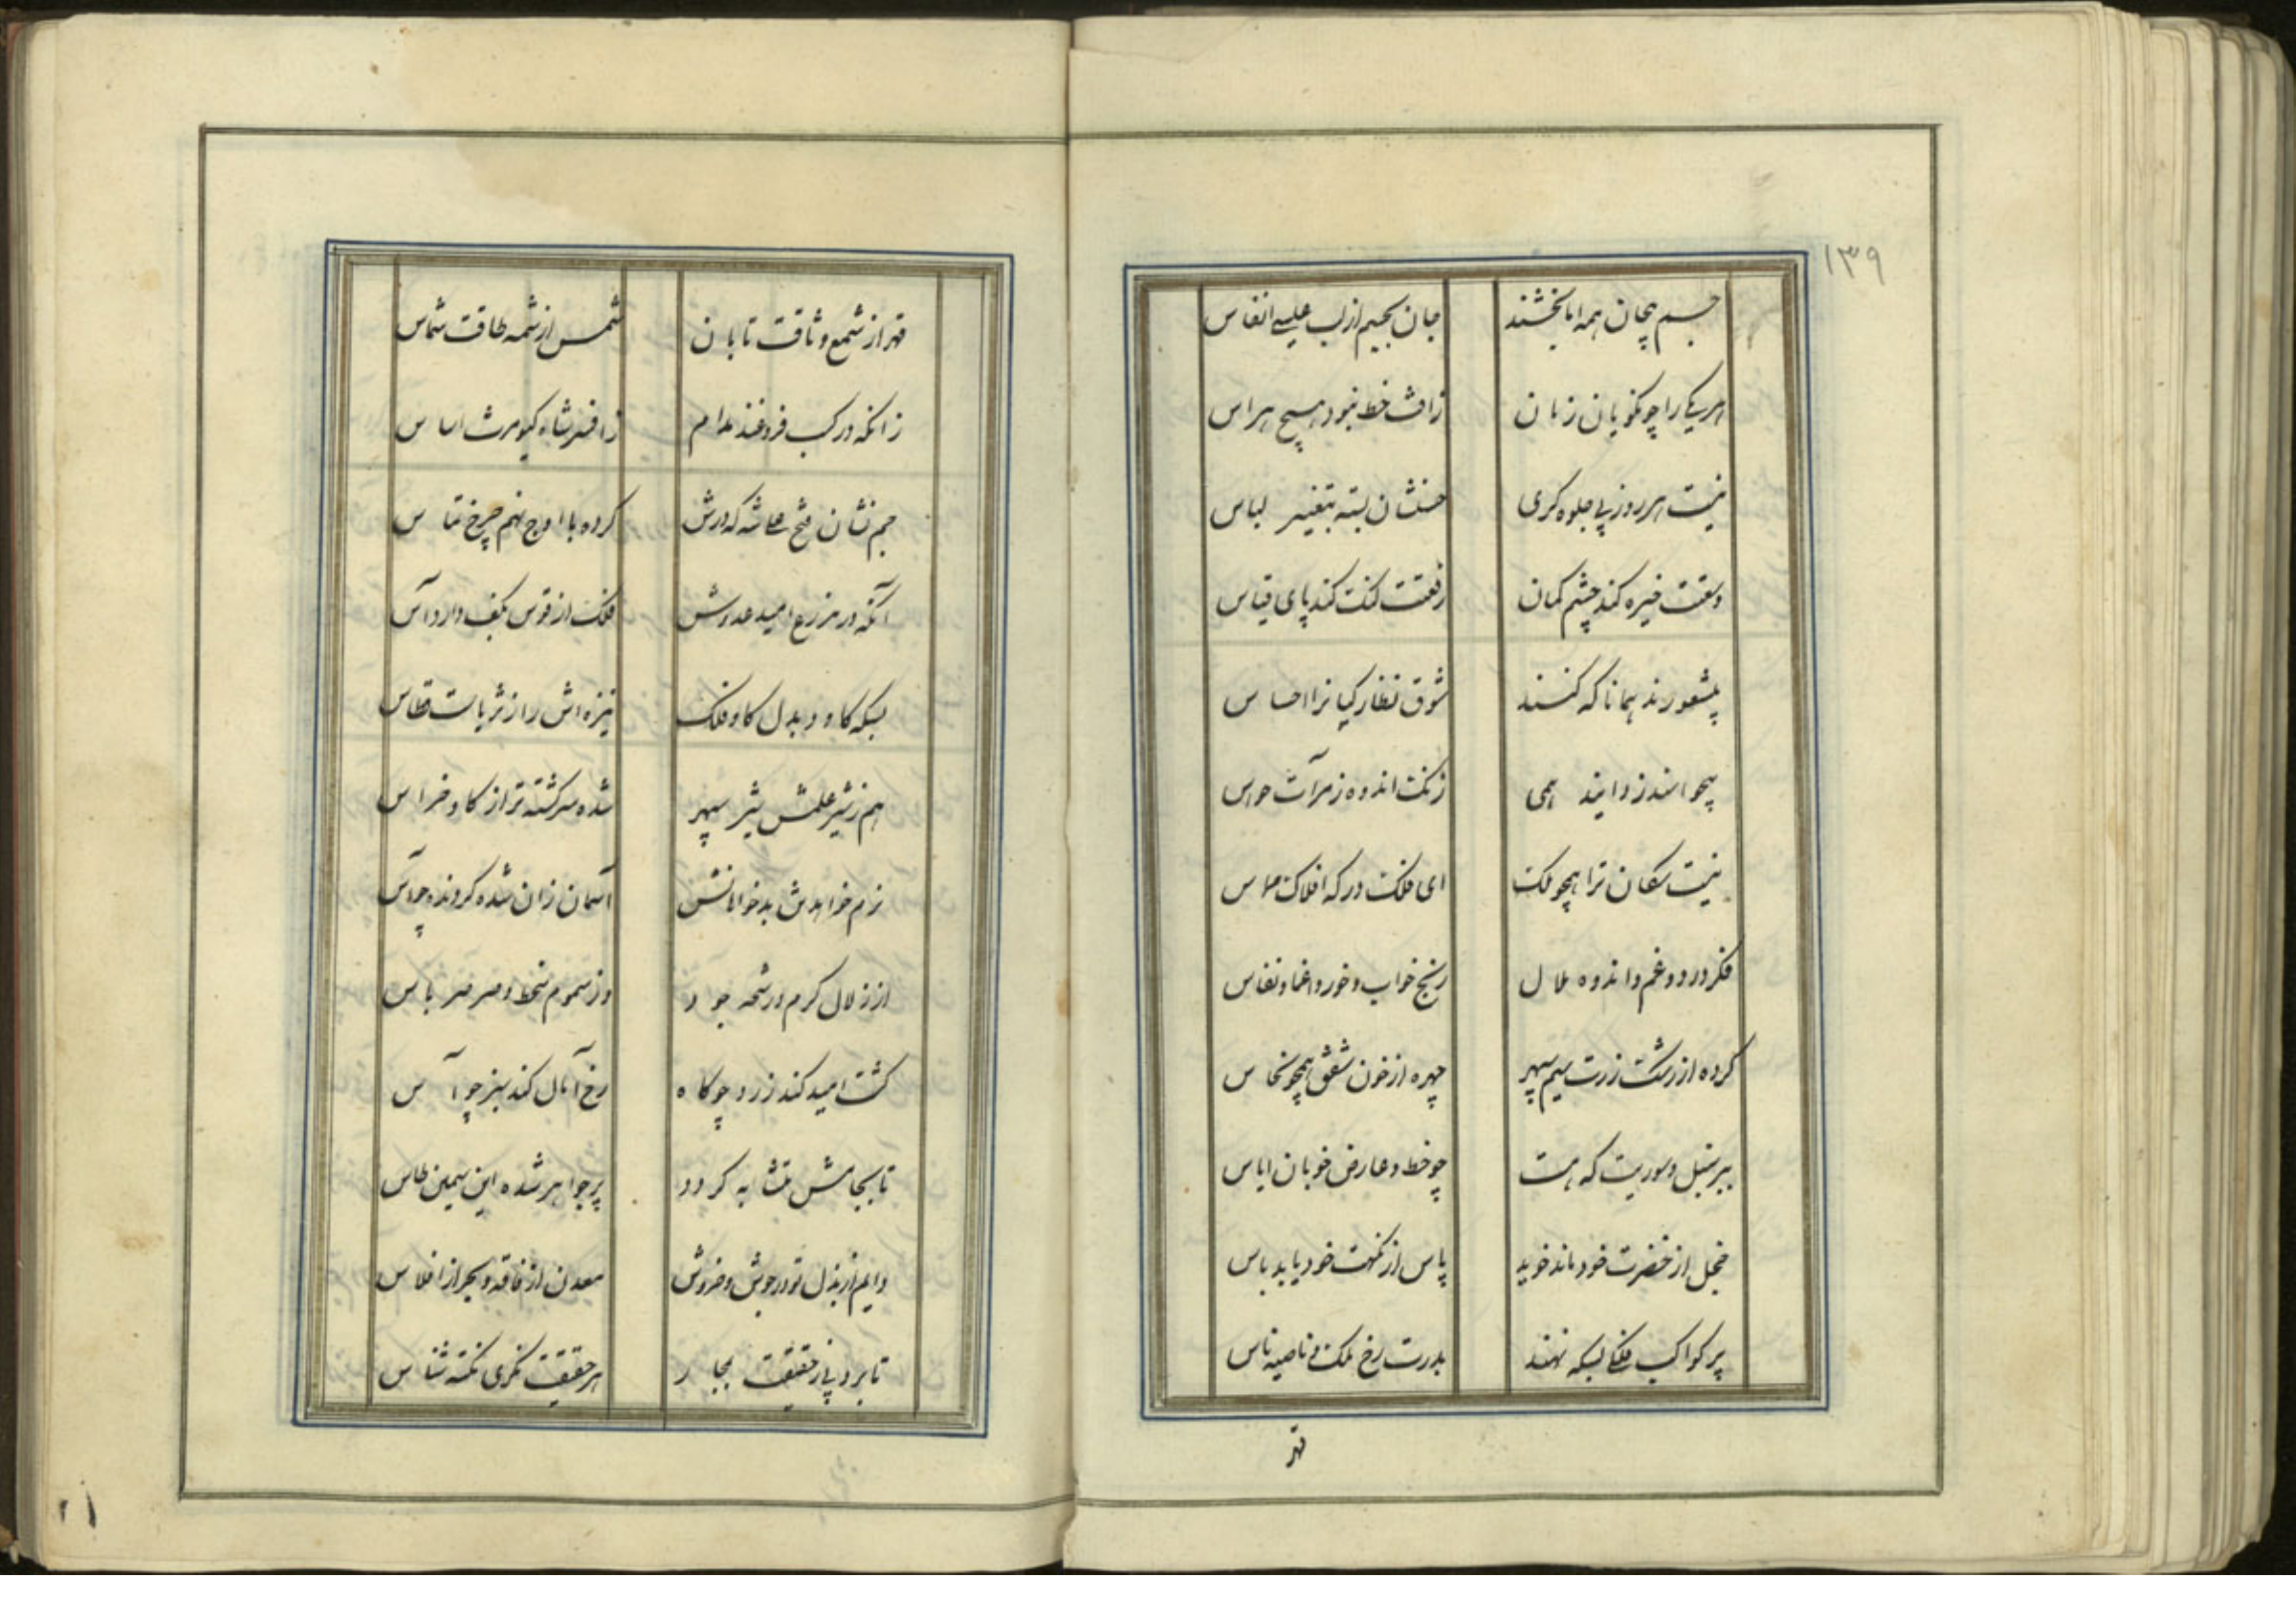 ۱۳۹
جسم بیجان همه را بخشند جان بجسم از لب عیسی انفاس
هر یکی را چو نکویان زمان زافت خط نبود هیچ هراس
نیست هر روز پی جلوه کری حسنشان بسته بتغییر لباس
وسعتت خیره کند چشم کمان رفعتت کنک کند پای قیاس
بیشعورند همانا که کنند شوق نظارکیانرا احساس
زدایند همی زنک اندوه ز مرآت حواس
نیست سکان ترا همچو ملک ای فلک درکه افلاک مماس
فکر درد و غم و اندوه ملال رنج خواب و خور و اغما و نعاس
کرده از رشک زرت سیم سپهر چهره از خون شفق همچو نحاس
سنبل و سوریت که هست چو خط و عارض خوبان ایاس
خجل از خضرت خود ماند خوید یاس از نکهت خود یابد یاس
پر کواکب فلکی بسکه نهند بدرت رخ ملک و ناصیه ناس
قهر
قهر از شمع وثاقت تابان شمس از شمه طاقت شماس
زانکه در کسب فروغند مدام زافسر شاه کیومرث اساس
جم نشان فتح علی شه که درش کرده با اوج نهم چرخ تماس
آنکه در مزرع امید عدوش فلک از قوس بکف دارد آس
بسکه کاود بدل کاو فلک نیزه اش را ز ثریاست قطاس
هم ز شیر علمش شیر سپهر شده سرکشته تر از کاو خراس
نرم خواهدش بد خواهانش آسمان زان شده کردنده چو آس
از زلال کرم و رشحه جود وز سموم سخط و صرصر باس
کشت امید کند زرد چو کاه رخ آمال کند سبز چو آس
تا بجامش متشابه کردد پر جواهر شده این سیمین طاس
دایم از بذل تو در جوش و خروش معدن از فاقه و بحر از افلاس
تا برد پی ز حقیقت بمجاز هر حقیقت نکری نکته شناس